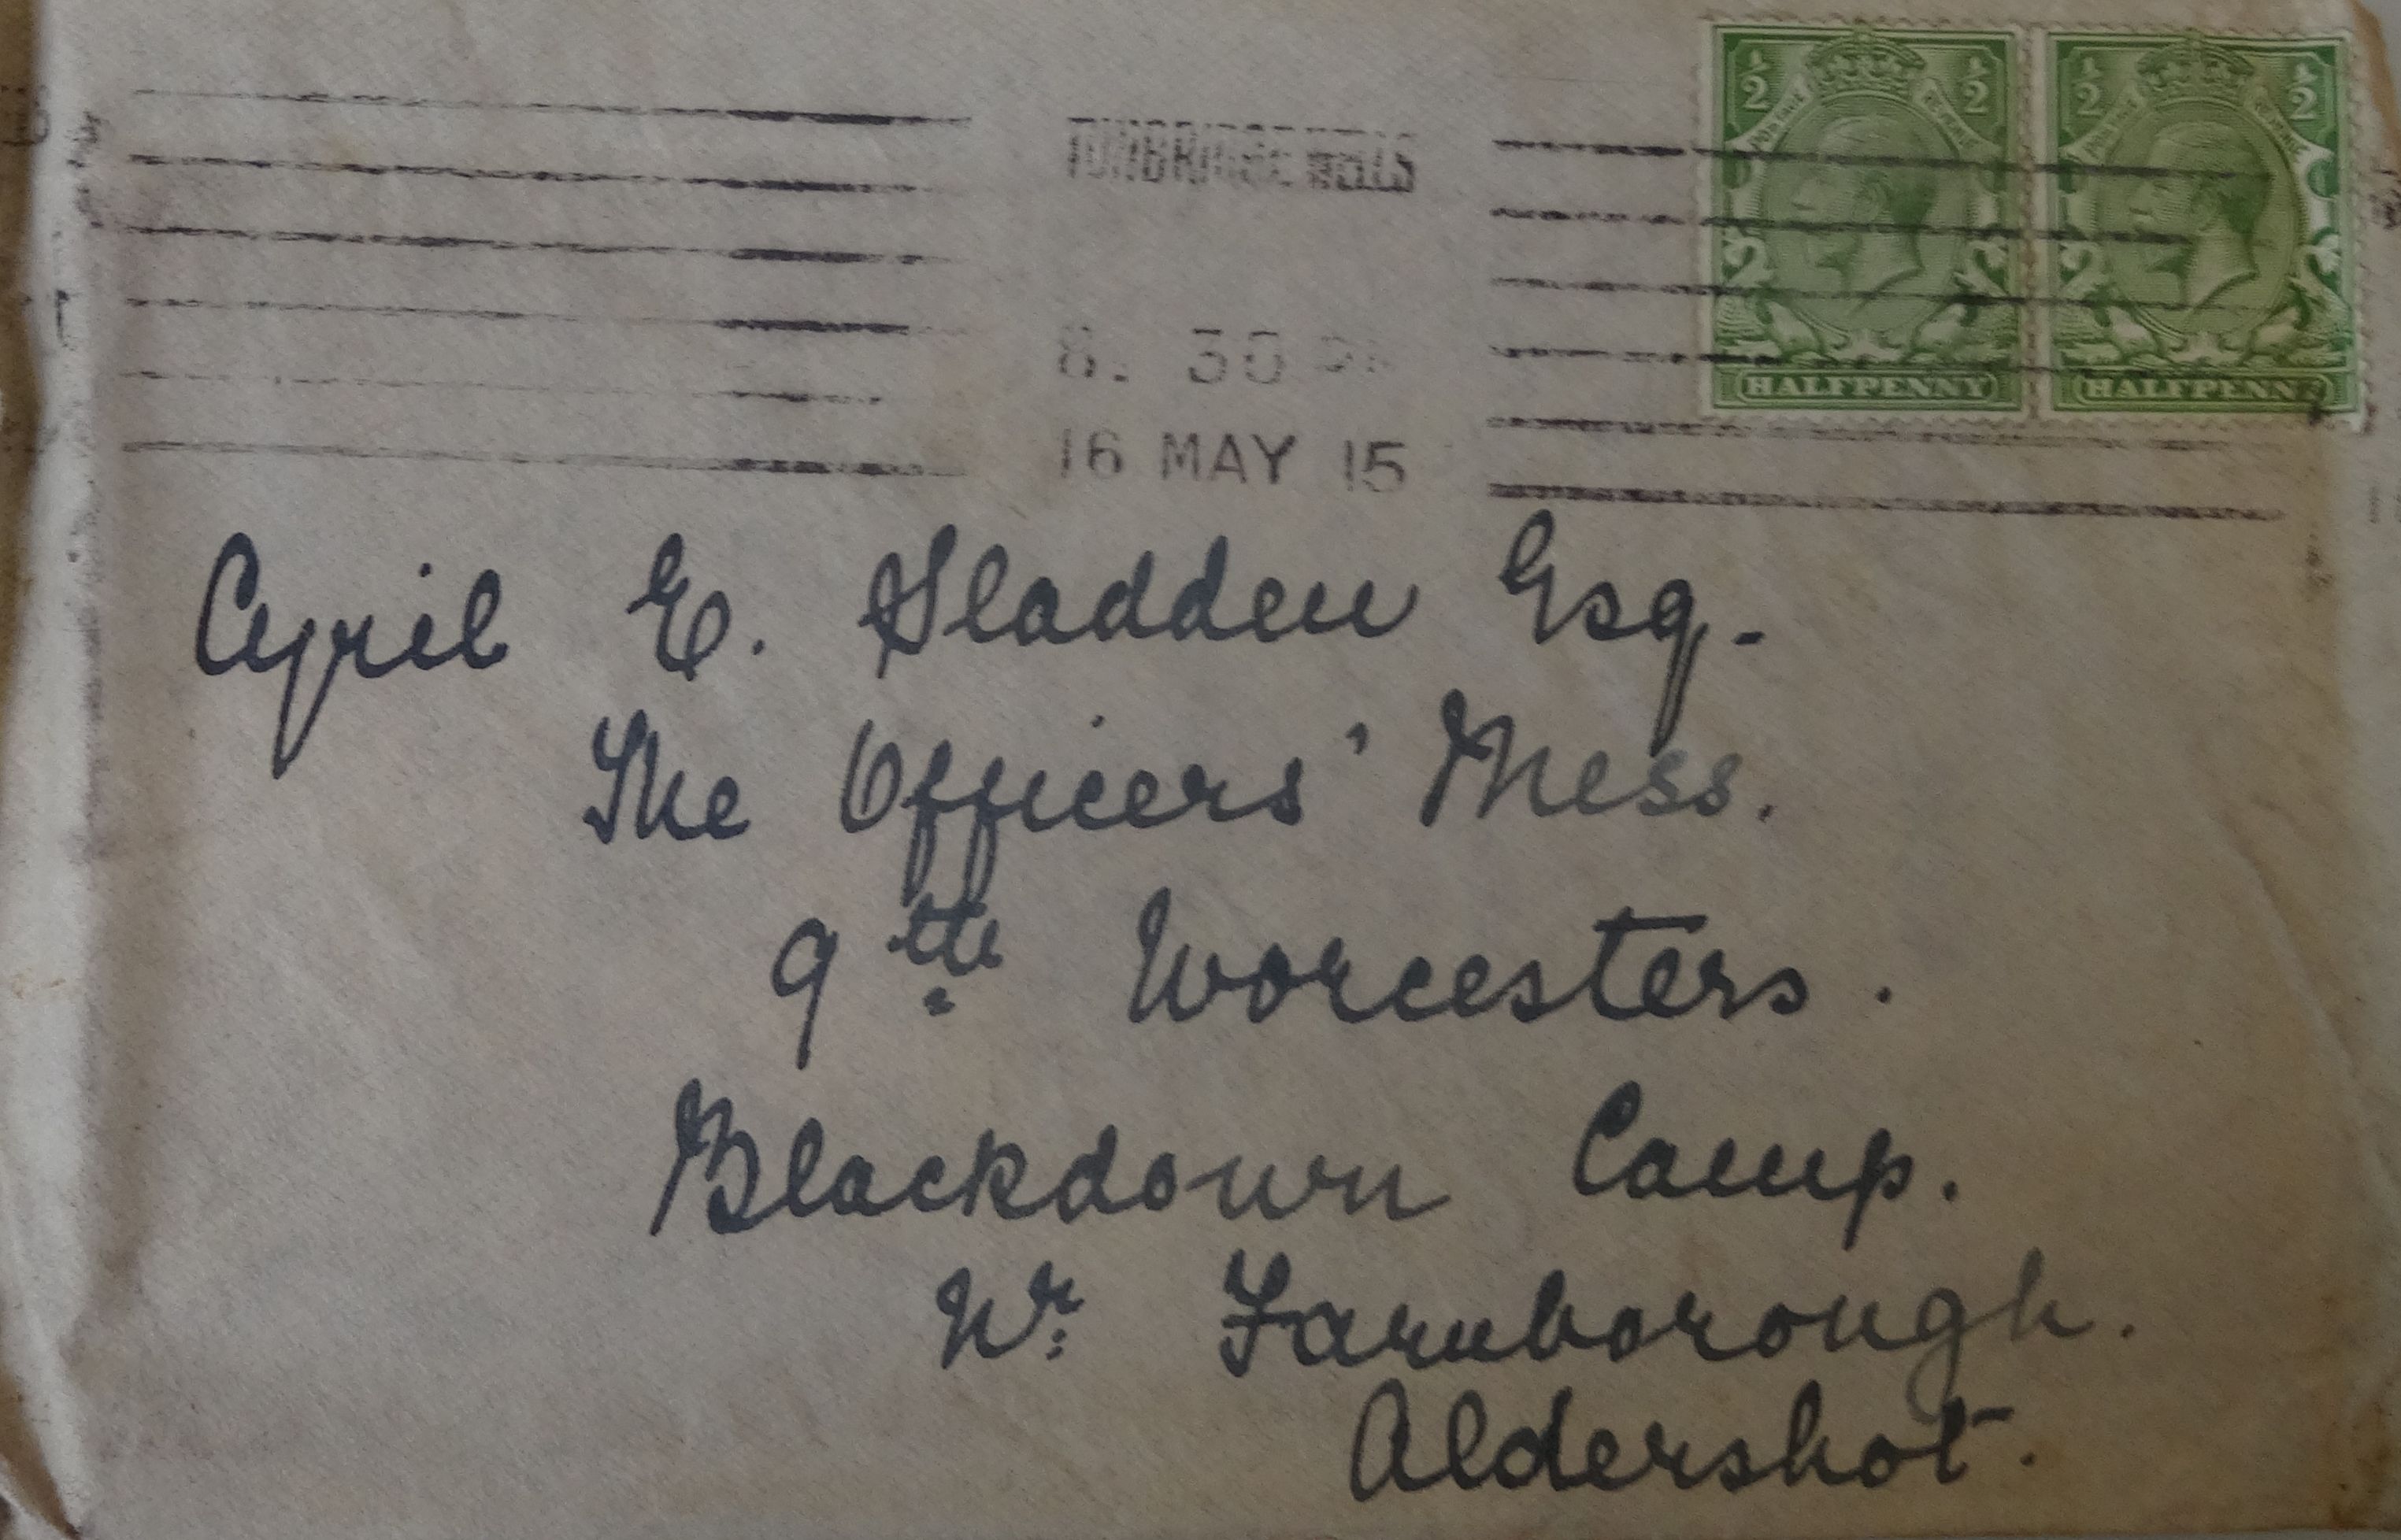 TUNBRIDGE WELLS
8. 30 PM
16 MAY 15
½ ½
POSTAGE REVENUE
HALFPENNY
½ ½
POSTAGE REVENUE
HALFPENNY
Cyril E. Sladden Esq.
The Officers' Mess.
9th Worcesters.
Blackdown Camp.
Nr Farnborough.
Aldershot.